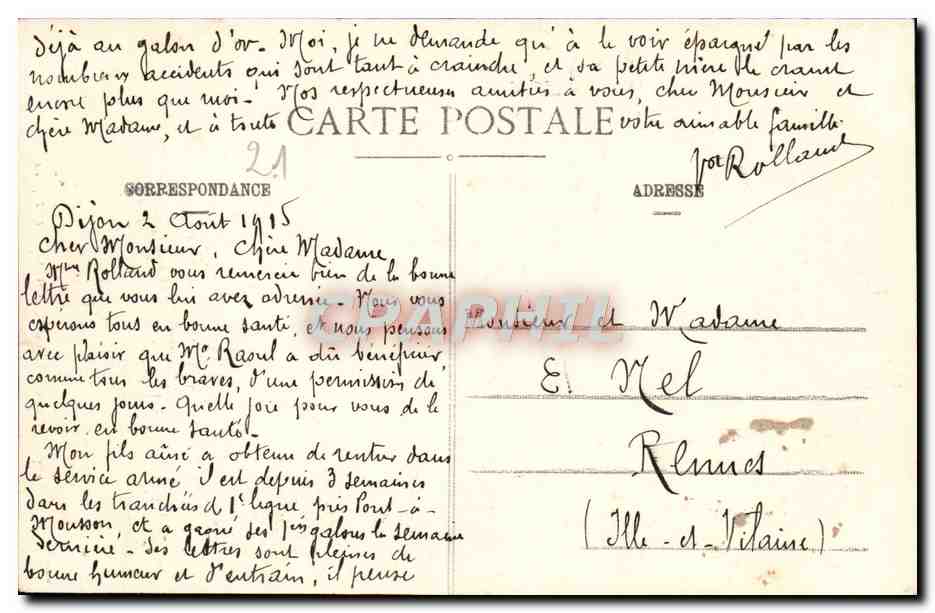 déjà au galon d'or. Moi, je ne demande qu'à le voir épargné par les
nombreux accidents qui sont tant à craindre, et sa petite mère le craint
encore plus que moi. Nos respectueuses amitiés à vous, cher Monsieur et
chère Madame, et à toute votre aimable famille.
CARTE POSTALE
Rolland
21
CORRESPONDANCE
ADRESSE
Dijon 2 Août 1915
Cher Monsieur, Chère Madame
Mme Rolland vous remercie bien de la bonne
lettre que vous lui avez adressée. Nous vous
espérons tous en bonne santé, et nous pensons
avec plaisir que Mr Raoul a dû bénéficier
comme tous les braves, d'une permission de
quelques jours. Quelle joie pour vous de le
revoir en bonne santé.
Mon fils aîné a obtenu de rentrer dans
le service armé il est depuis 3 semaines
dans les tranchées de 1e ligne, près Pont-à-
Mousson, et a gagné ses 1ers galons la semaine
dernière. Ses lettres sont pleines de
bonne humeur et d'entrain, il pense
Monsieur et Madame
E. Nel
Rennes
(Ille-et-Vilaine)
CPAPHIL